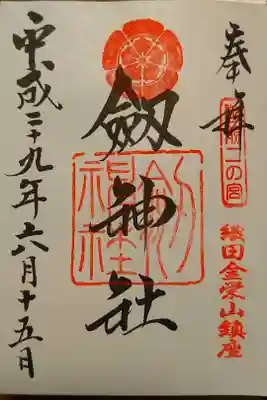 奉拝
越前二の宮
織田金栄山鎮座
劔神社
劔神社
平成二十九年六月十五日